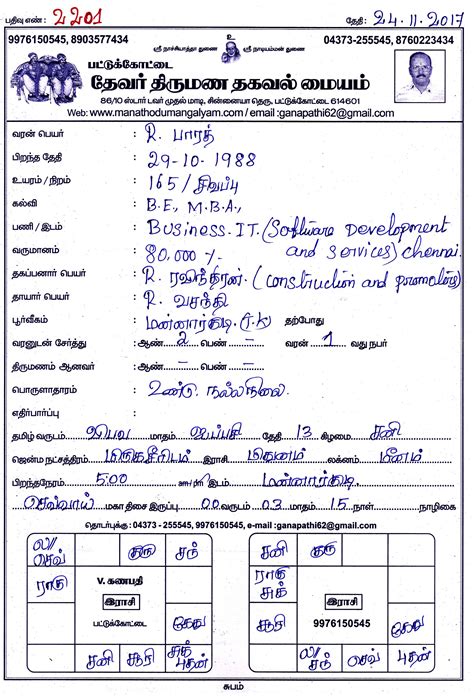 பதிவு எண் : 2201 தேதி : 24.11.2017
9976150545, 8903577434 உ 04373-255545, 8760223434
ஸ்ரீ நாச்சியாத்தா துணை ஸ்ரீ நாடியம்மன் துணை
பட்டுக்கோட்டை
தேவர் திருமண தகவல் மையம்
86/10 ஸ்டார் டவர் முதல் மாடி, சின்னையா தெரு, பட்டுக்கோட்டை 614601
Web: www.manathodumangalyam.com / email :ganapathi62@gmail.com
வரன் பெயர் : R. பாரத்
பிறந்த தேதி : 29-10-1988
உயரம் / நிறம் : 165 / சிவப்பு
கல்வி : B.E., M.B.A.,
பணி / இடம் : Business.IT. (Software Development
வருமானம் : 80,000 /- and services) chennai.
தகப்பனார் பெயர் : R. ரவிந்திரன். (construction and promoters)
தாயார் பெயர் : R. வசந்தி
பூர்வீகம் : மன்னார்குடி.(T.K) தற்போது
வரனுடன் சேர்த்து : ஆண் 2 பெண் - வரன் 1 வது நபர்
திருமணம் ஆனவர் : ஆண் - பெண் -
பொருளாதாரம் : உண்டு. நல்லநிலை.
எதிர்பார்ப்பு :
தமிழ் வருடம் விபவ மாதம் ஐப்பசி தேதி 13 கிழமை சனி
ஜென்ம நட்சத்திரம் மிருகசீரிடம் இராசி மிதுனம் லக்னம் மீனம்
பிறந்தநேரம் 5.00 am/pm இடம் மன்னார்குடி
செவ்வாய் மகா திசை இருப்பு 00 வருடம் 03 மாதம் 15 நாள் நாழிகை
தொடர்புக்கு : 04373 - 255545, 9976150545, e-mail :ganapathi62@gmail.com
ல// செவ் குரு சந் சனி குரு
ராகு V. கணபதி ராகு சுக்
இராசி இராசி
பட்டுக்கோட்டை கேது சூரி 9976150545 கேது
சனி சூரி சுக் புதன் ல// சந் செவ் புதன்
சுபம்